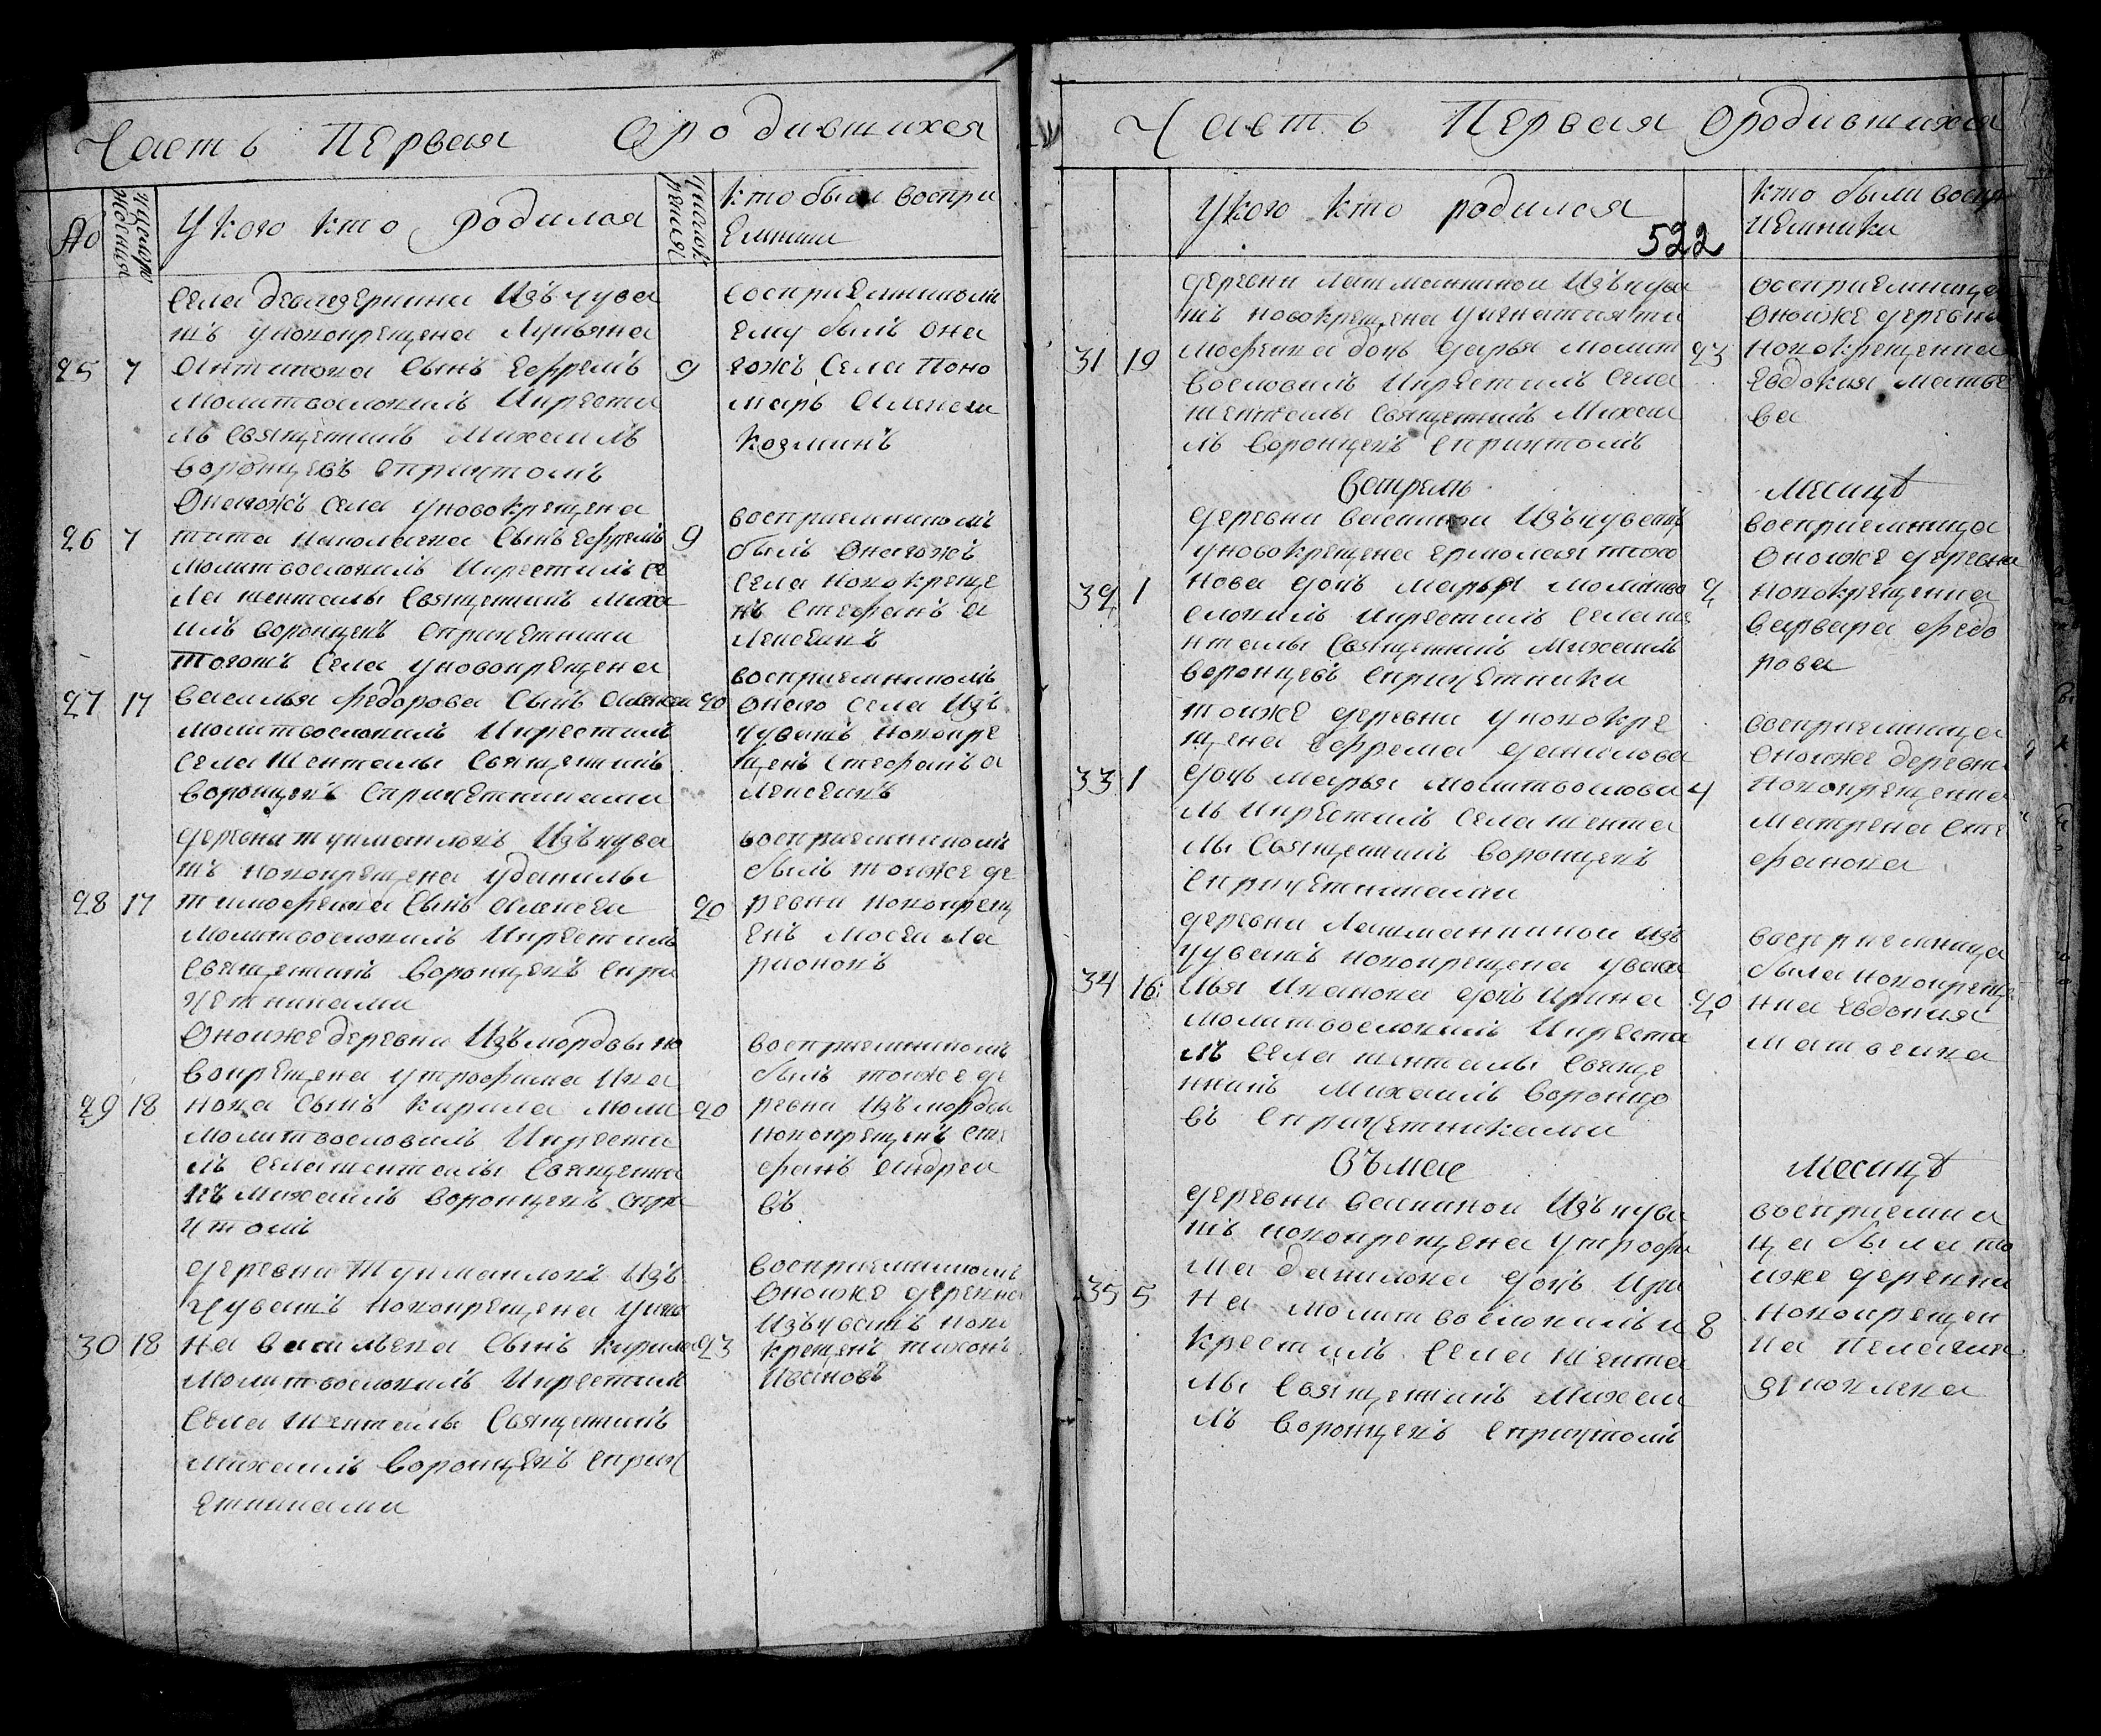 Часть Первая О родившихся
№
число рождения
У кого кто родился
число крещения
кто были воспри
Емники
Села девлезеркина Изъ чува
шъ у новокрещена Лукьяна
25 7 Антипова Сынъ Ефремъ 9
молитвословилъ Икрести
лъ Священникъ Михаилъ
воронцевъ спричтомъ
восприемникомъ
ему былъ она
гожъ Села Поно
марь Алексеи
Козминъ
Оногожъ Села уновокрещена
26 7 тита николаева Сынъ Ефремъ 9
молитвословилъ Икрестилъ се
ла шенталы Священникъ Миха
илъ воронцевъ спричетники
восприемникомъ
былъ Оногожъ
Села новокреще
нъ Стефанъ а
лексеивъ
Тогожъ Села уновокрещена
27 17 василья Федорова Сынъ Алексеи 20
молитвословилъ Икрестилъ
Села Шенталы Священникъ
воронцевъ Спричетниками
восприемникомъ
Оного Села Изъ
чувашъ новокре
щенъ Стефанъ а
лексеивъ
деревни туимаиловъ Изъ чува
шъ новокрещена уданилы
28 17 тимофеива Сынъ Алексеи 20
молитвословилъ Икрестилъ
Священникъ воронцевъ спри
четниками
восприемникомъ
былъ тоиже де
ревни новокрещ
енъ мосеи Ла
рионовъ
Оноиже деревни Изъ мордвы но
вокрещена утрофима Ива
29 18 нова Сынъ кирила моли 20
молитвословилъ Икрести
лъ Села шенталы Священни
къ михаилъ воронцевъ спри
чтомъ
восприемникомъ
былъ тоиже де
ревни Изъ мордвы
новокрещенъ сте
фанъ андрее
въ
деревни Туимаиловъ Изъ
чувашъ новокрещена уива
30 18 на васильева Сынъ кирила 23
молитвословилъ Икрестилъ
Села шенталы Священникъ
михаилъ воронцевъ сприч
етниками
восприемникомъ
Оноиже деревни
Изъ чувашъ ново
крещенъ тихонъ
Ивановъ
Часть Первая О родившихся
У кого кто родился
522
кто были воспр
иЕмники
деревни лашманкинои Изъ чува
шъ новокрещена уигнатия ти
31 19 мофеива дочь дарья молит 23
вословилъ Икрестилъ Села
шенталы Священникъ Михаи
лъ воронцевъ Спричтомъ
восприемница
Оноиже деревни
новокрещенна
Евдокия матве
ва
Вапрель Месицъ
деревни васкинои Изъ чувашъ
уновокрещена ермолая тихо
32 1 нова дочь марья молитво 2
словилъ икрестилъ Села ше
нталы Священникъ Михаилъ
воронцевъ спричетники
восприемница
Оноиже деревни
новокрещенна
варвара Федо
рова
тоиже деревни уновокре
щена Ефрема данилова
33 1 дочь марья молитвослови 4
лъ Икрестилъ Села шента
лы Священникъ воронцевъ
Спричетниками
восприемница
Оноиже деревни
новокрещенна
матрена сте
фанова
деревни Лашманкинои изъ
чувашъ новокрещена уваси
34 16 лья Иванова дочь Ирина 20
молитвословилъ Икрести
лъ Села шенталы Священ
никъ Михаилъ воронцо
въ спричетниками
восприемница
была новокреще
нна Евдокия
матвеива
Въ мае Месицъ
деревни васкинои Изъ чува
шъ новокрещена утрофи
ма данилова дочь Ири
35 5 на молитвословилъ и 8
крестилъ Села шента
лы Священникъ Михаи
лъ воронцевъ спричтомъ
восприемни
ца была то
иже деревни
новокрещен
на пелагия
яковлева